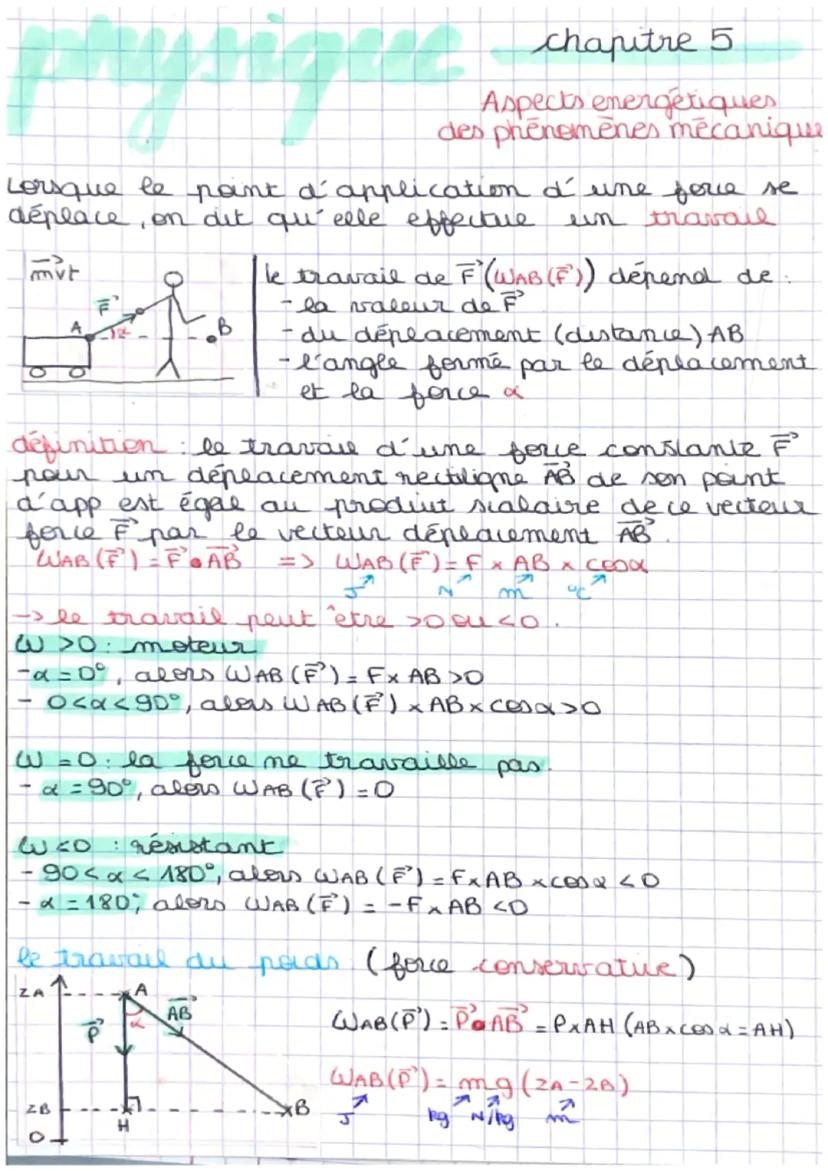 physique
chapitre 5
Aspects energétiques
des phénomènes mécanique
Lorsque le point d'application d'une force se
déplace, on dit qu'elle effectue un travail
m̅v̅t̅
F⃗
A
α
B
le travail de F⃗ (WAB(F⃗)) dépend de :
- la valeur de F⃗
- du déplacement (distance) AB
- l'angle formé par le déplacement
et la force α
définition : le travail d'une force constante F⃗
pour un déplacement rectiligne AB⃗ de son point
d'app est égal au produit scalaire de ce vecteur
force F⃗ par le vecteur déplacement AB⃗.
WAB(F⃗) = F⃗ • AB⃗ => WAB(F⃗) = F × AB × cosα
J N m °C
-> le travail peut être >0 ou <0.
W >0 : moteur
- α = 0°, alors WAB(F⃗) = F × AB >0
- 0<α<90°, alors WAB(F⃗) × AB × cosα >0
W = 0 : la force ne travaille pas.
- α = 90°, alors WAB(F⃗) = 0
W <0 : résistant
- 90<α<180°, alors WAB(F⃗) = F×AB×cosα <0
- α = 180°, alors WAB(F⃗) = -F×AB <0
le travail du poids (force conservative)
ZA
A
AB⃗
α
P⃗
WAB(P⃗) = P⃗ • AB⃗ = P×AH (AB×cosα = AH)
WAB(P⃗) = mg (ZA - ZB)
J kg N/kg m
ZB
H
B
O